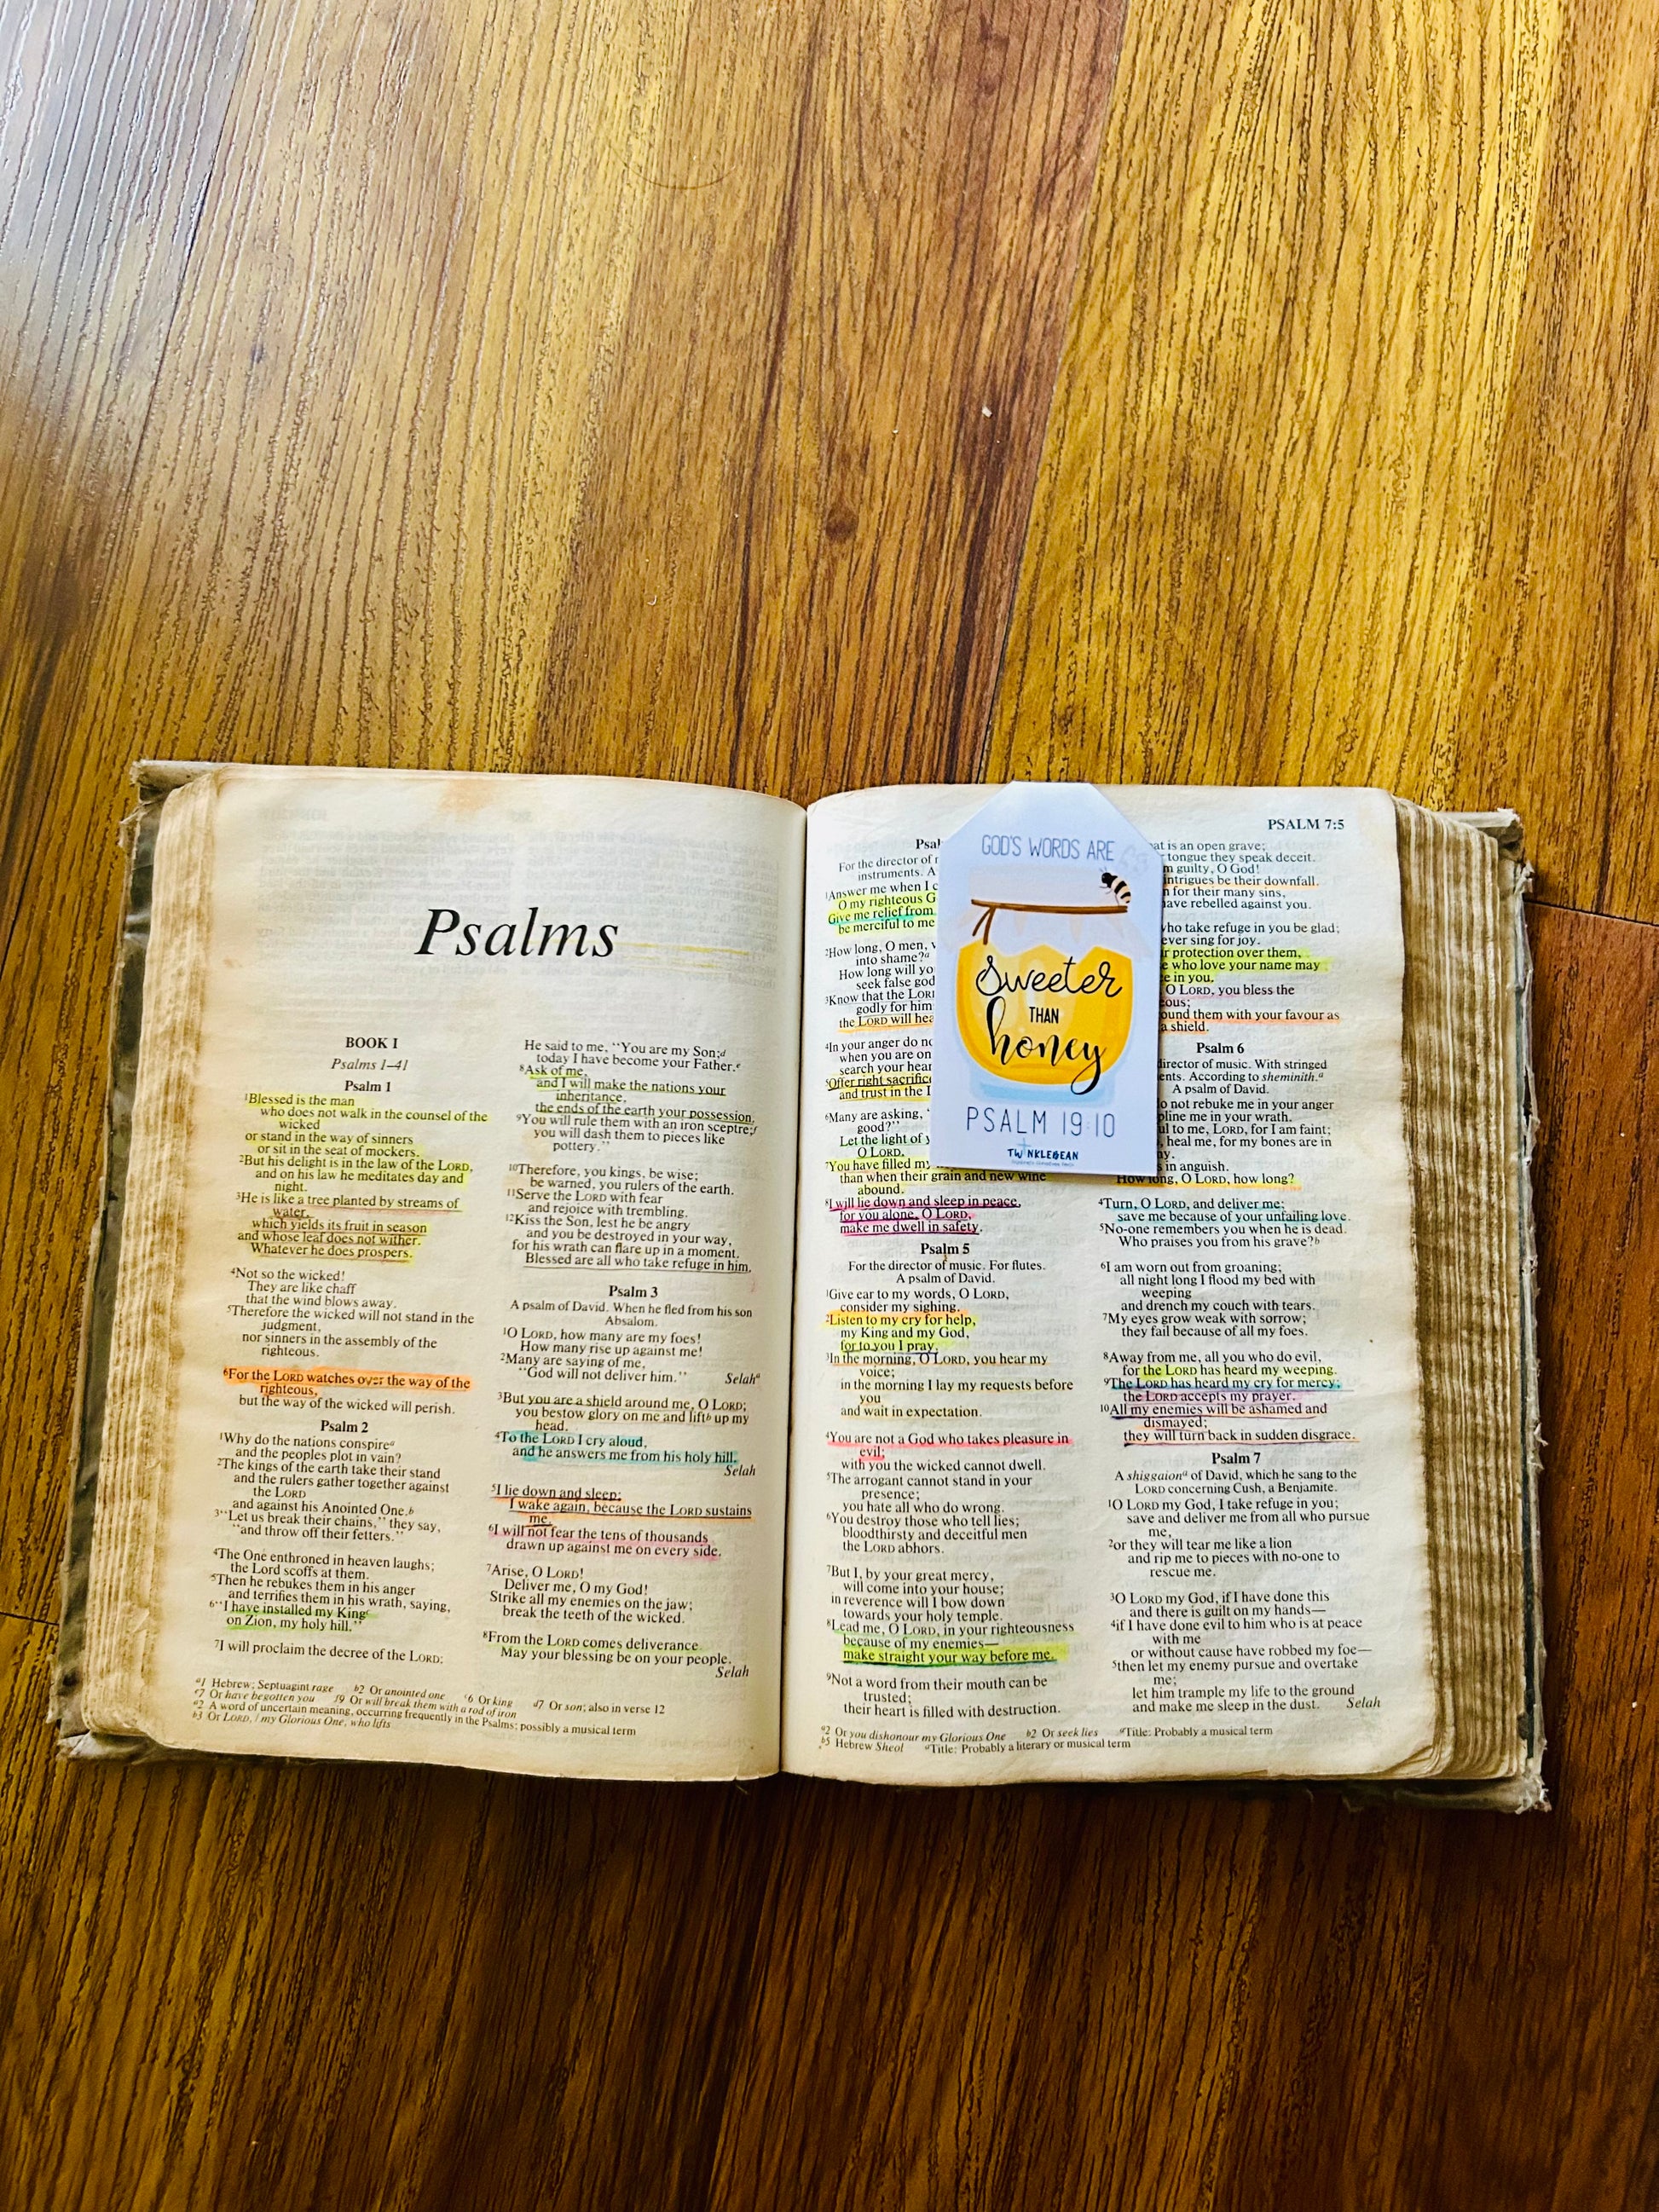 Psalms
BOOK I
Psalms 1–41
Psalm 1
1Blessed is the man
who does not walk in the counsel of the
wicked
or stand in the way of sinners
or sit in the seat of mockers.
2But his delight is in the law of the LORD,
and on his law he meditates day and
night.
3He is like a tree planted by streams of
water,
which yields its fruit in season
and whose leaf does not wither.
Whatever he does prospers.
4Not so the wicked!
They are like chaff
that the wind blows away.
5Therefore the wicked will not stand in the
judgment,
nor sinners in the assembly of the
righteous.
6For the LORD watches over the way of the
righteous,
but the way of the wicked will perish.
Psalm 2
1Why do the nations conspirea
and the peoples plot in vain?
2The kings of the earth take their stand
and the rulers gather together against
the LORD
and against his Anointed One.b
3“Let us break their chains,” they say,
“and throw off their fetters.”
4The One enthroned in heaven laughs;
the Lord scoffs at them.
5Then he rebukes them in his anger
and terrifies them in his wrath, saying,
6“I have installed my Kingc
on Zion, my holy hill.”
7I will proclaim the decree of the LORD:
He said to me, “You are my Son;d
today I have become your Father.e
8Ask of me,
and I will make the nations your
inheritance,
the ends of the earth your possession.
9You will rule them with an iron sceptre;f
you will dash them to pieces like
pottery.”
10Therefore, you kings, be wise;
be warned, you rulers of the earth.
11Serve the LORD with fear
and rejoice with trembling.
12Kiss the Son, lest he be angry
and you be destroyed in your way,
for his wrath can flare up in a moment.
Blessed are all who take refuge in him.
Psalm 3
A psalm of David. When he fled from his son
Absalom.
1O LORD, how many are my foes!
How many rise up against me!
2Many are saying of me,
“God will not deliver him.” Selaha
3But you are a shield around me, O LORD;
you bestow glory on me and liftb up my
head.
4To the LORD I cry aloud,
and he answers me from his holy hill.
Selah
5I lie down and sleep;
I wake again, because the LORD sustains
me.
6I will not fear the tens of thousands
drawn up against me on every side.
7Arise, O LORD!
Deliver me, O my God!
Strike all my enemies on the jaw;
break the teeth of the wicked.
8From the LORD comes deliverance.
May your blessing be on your people.
Selah
a1 Hebrew; Septuagint rage b2 Or anointed one c6 Or king d7 Or son; also in verse 12
e7 Or have begotten you f9 Or will break them with a rod of iron
a2 A word of uncertain meaning, occurring frequently in the Psalms; possibly a musical term
b3 Or LORD, / my Glorious One, who lifts
For the director of
instruments. A
1Answer me when I
O my righteous
Give me relief from
be merciful to me
2How long, O men,
into shame?a
How long will yo
seek false god
3Know that the LORD
godly for him
the LORD will hea
4In your anger do no
when you are on
search your hear
5Offer right sacrific
and trust in the
6Many are asking, “
good?”
Let the light of y
O LORD.
7You have filled my
than when their grain and new wine
abound.
8I will lie down and sleep in peace,
for you alone, O LORD,
make me dwell in safety.
Psalm 5
For the director of music. For flutes.
A psalm of David.
1Give ear to my words, O LORD,
consider my sighing.
2Listen to my cry for help,
my King and my God,
for to you I pray.
3In the morning, O LORD, you hear my
voice;
in the morning I lay my requests before
you
and wait in expectation.
4You are not a God who takes pleasure in
evil;
with you the wicked cannot dwell.
5The arrogant cannot stand in your
presence;
you hate all who do wrong.
6You destroy those who tell lies;
bloodthirsty and deceitful men
the LORD abhors.
7But I, by your great mercy,
will come into your house;
in reverence will I bow down
towards your holy temple.
8Lead me, O LORD, in your righteousness
because of my enemies—
make straight your way before me.
9Not a word from their mouth can be
trusted;
their heart is filled with destruction.
GOD'S WORDS ARE
sweeter
THAN
honey
PSALM 19:10
TWINKLEBEAN
PSALM 7:5
at is an open grave;
tongue they speak deceit.
guilty, O God!
intrigues be their downfall.
for their many sins,
have rebelled against you.
who take refuge in you be glad;
ever sing for joy.
protection over them,
who love your name may
in you.
O LORD, you bless the
ous;
ound them with your favour as
a shield.
Psalm 6
director of music. With stringed
ents. According to sheminith.a
A psalm of David.
o not rebuke me in your anger
pline me in your wrath.
ul to me, LORD, for I am faint;
heal me, for my bones are in
ny.
is in anguish.
How long, O LORD, how long?
4Turn, O LORD, and deliver me;
save me because of your unfailing love.
5No-one remembers you when he is dead.
Who praises you from his grave?b
6I am worn out from groaning;
all night long I flood my bed with
weeping
and drench my couch with tears.
7My eyes grow weak with sorrow;
they fail because of all my foes.
8Away from me, all you who do evil,
for the LORD has heard my weeping.
9The LORD has heard my cry for mercy;
the LORD accepts my prayer.
10All my enemies will be ashamed and
dismayed;
they will turn back in sudden disgrace.
Psalm 7
A shiggaiona of David, which he sang to the
LORD concerning Cush, a Benjamite.
1O LORD my God, I take refuge in you;
save and deliver me from all who pursue
me,
2or they will tear me like a lion
and rip me to pieces with no-one to
rescue me.
3O LORD my God, if I have done this
and there is guilt on my hands—
4if I have done evil to him who is at peace
with me
or without cause have robbed my foe—
5then let my enemy pursue and overtake
me;
let him trample my life to the ground
and make me sleep in the dust. Selah
a2 Or you dishonour my Glorious One b2 Or seek lies aTitle: Probably a musical term
b5 Hebrew Sheol aTitle: Probably a literary or musical term